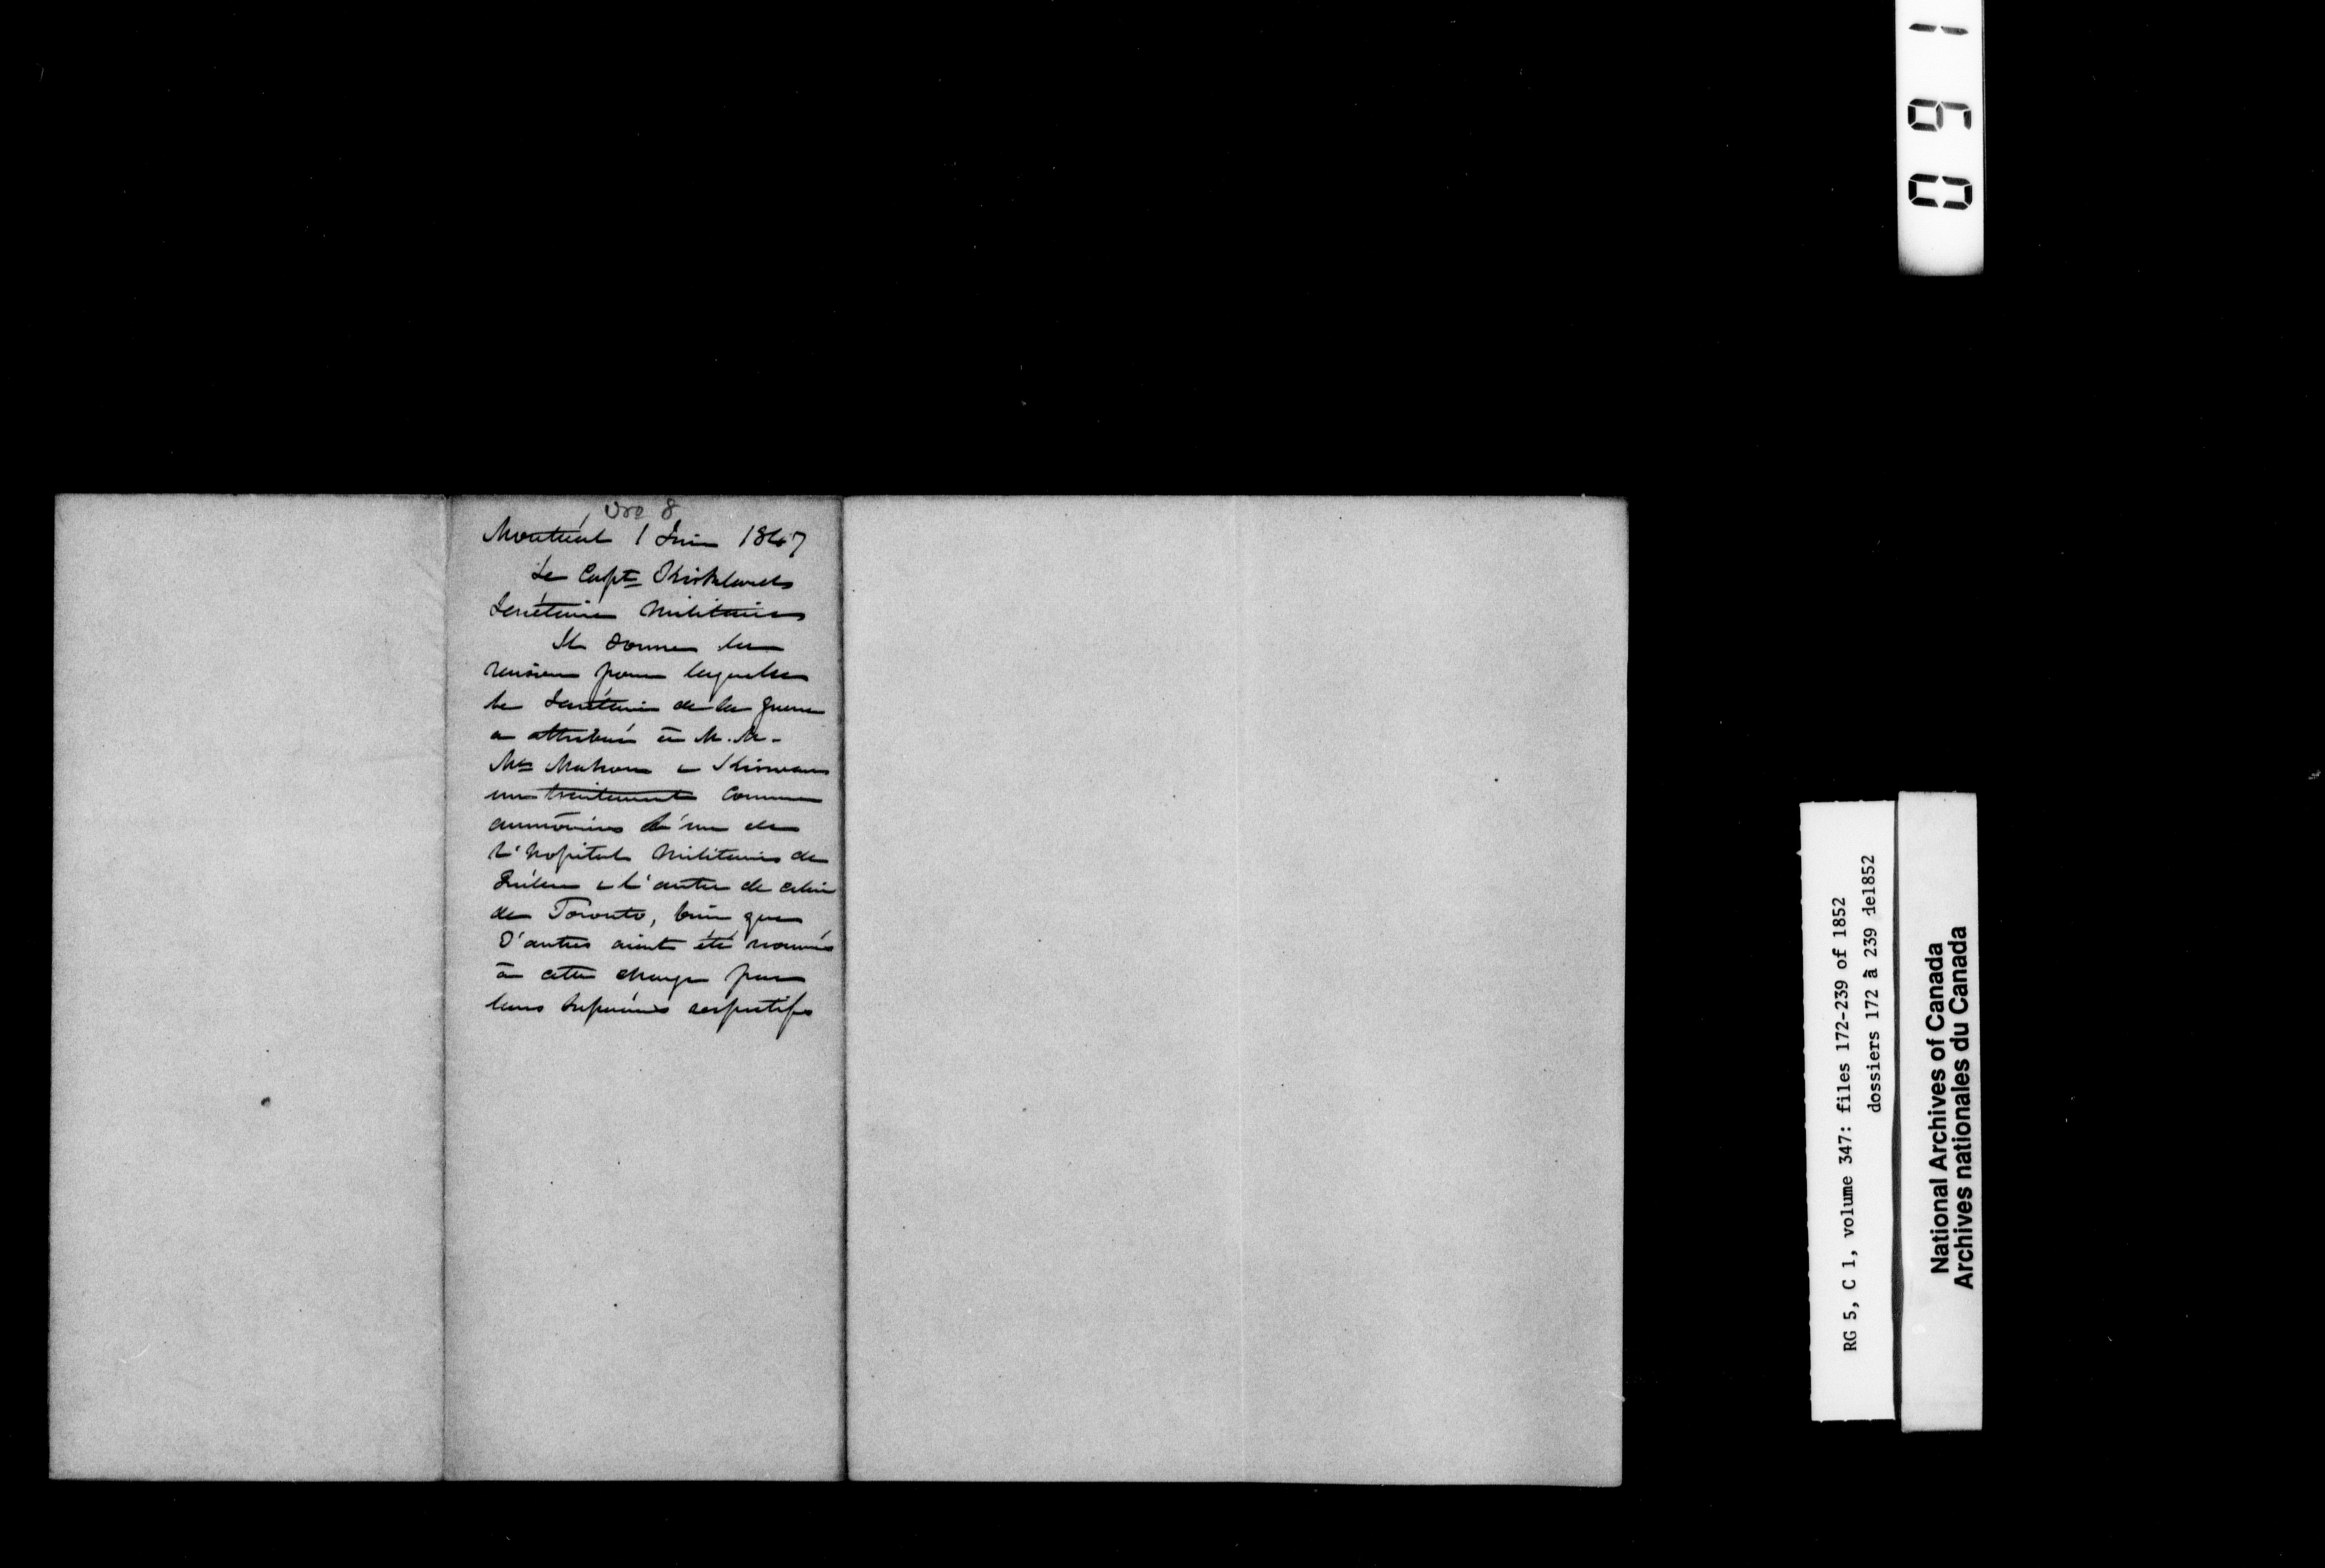 No 8
Montréal 1 Juin 1847
Le Capt Kirkland
Secrétaire Militaire
Il donne les
raisons pour lesquelles
le Secrétaire de la guerre
a attribué à M. M.
Mc Mahon & Kirwan
un traitement comme
aumôniers l'un de
l'hopital Militaire de
Québec & l'autre de celui
de Toronto, bien que
d'autres aient été nommés
à cette charge par
leurs supérieurs respectifs
0 6 1
RG 5, C 1, volume 347: files 172-239 of 1852
dossiers 172 à 239 de1852
National Archives of Canada
Archives nationales du Canada